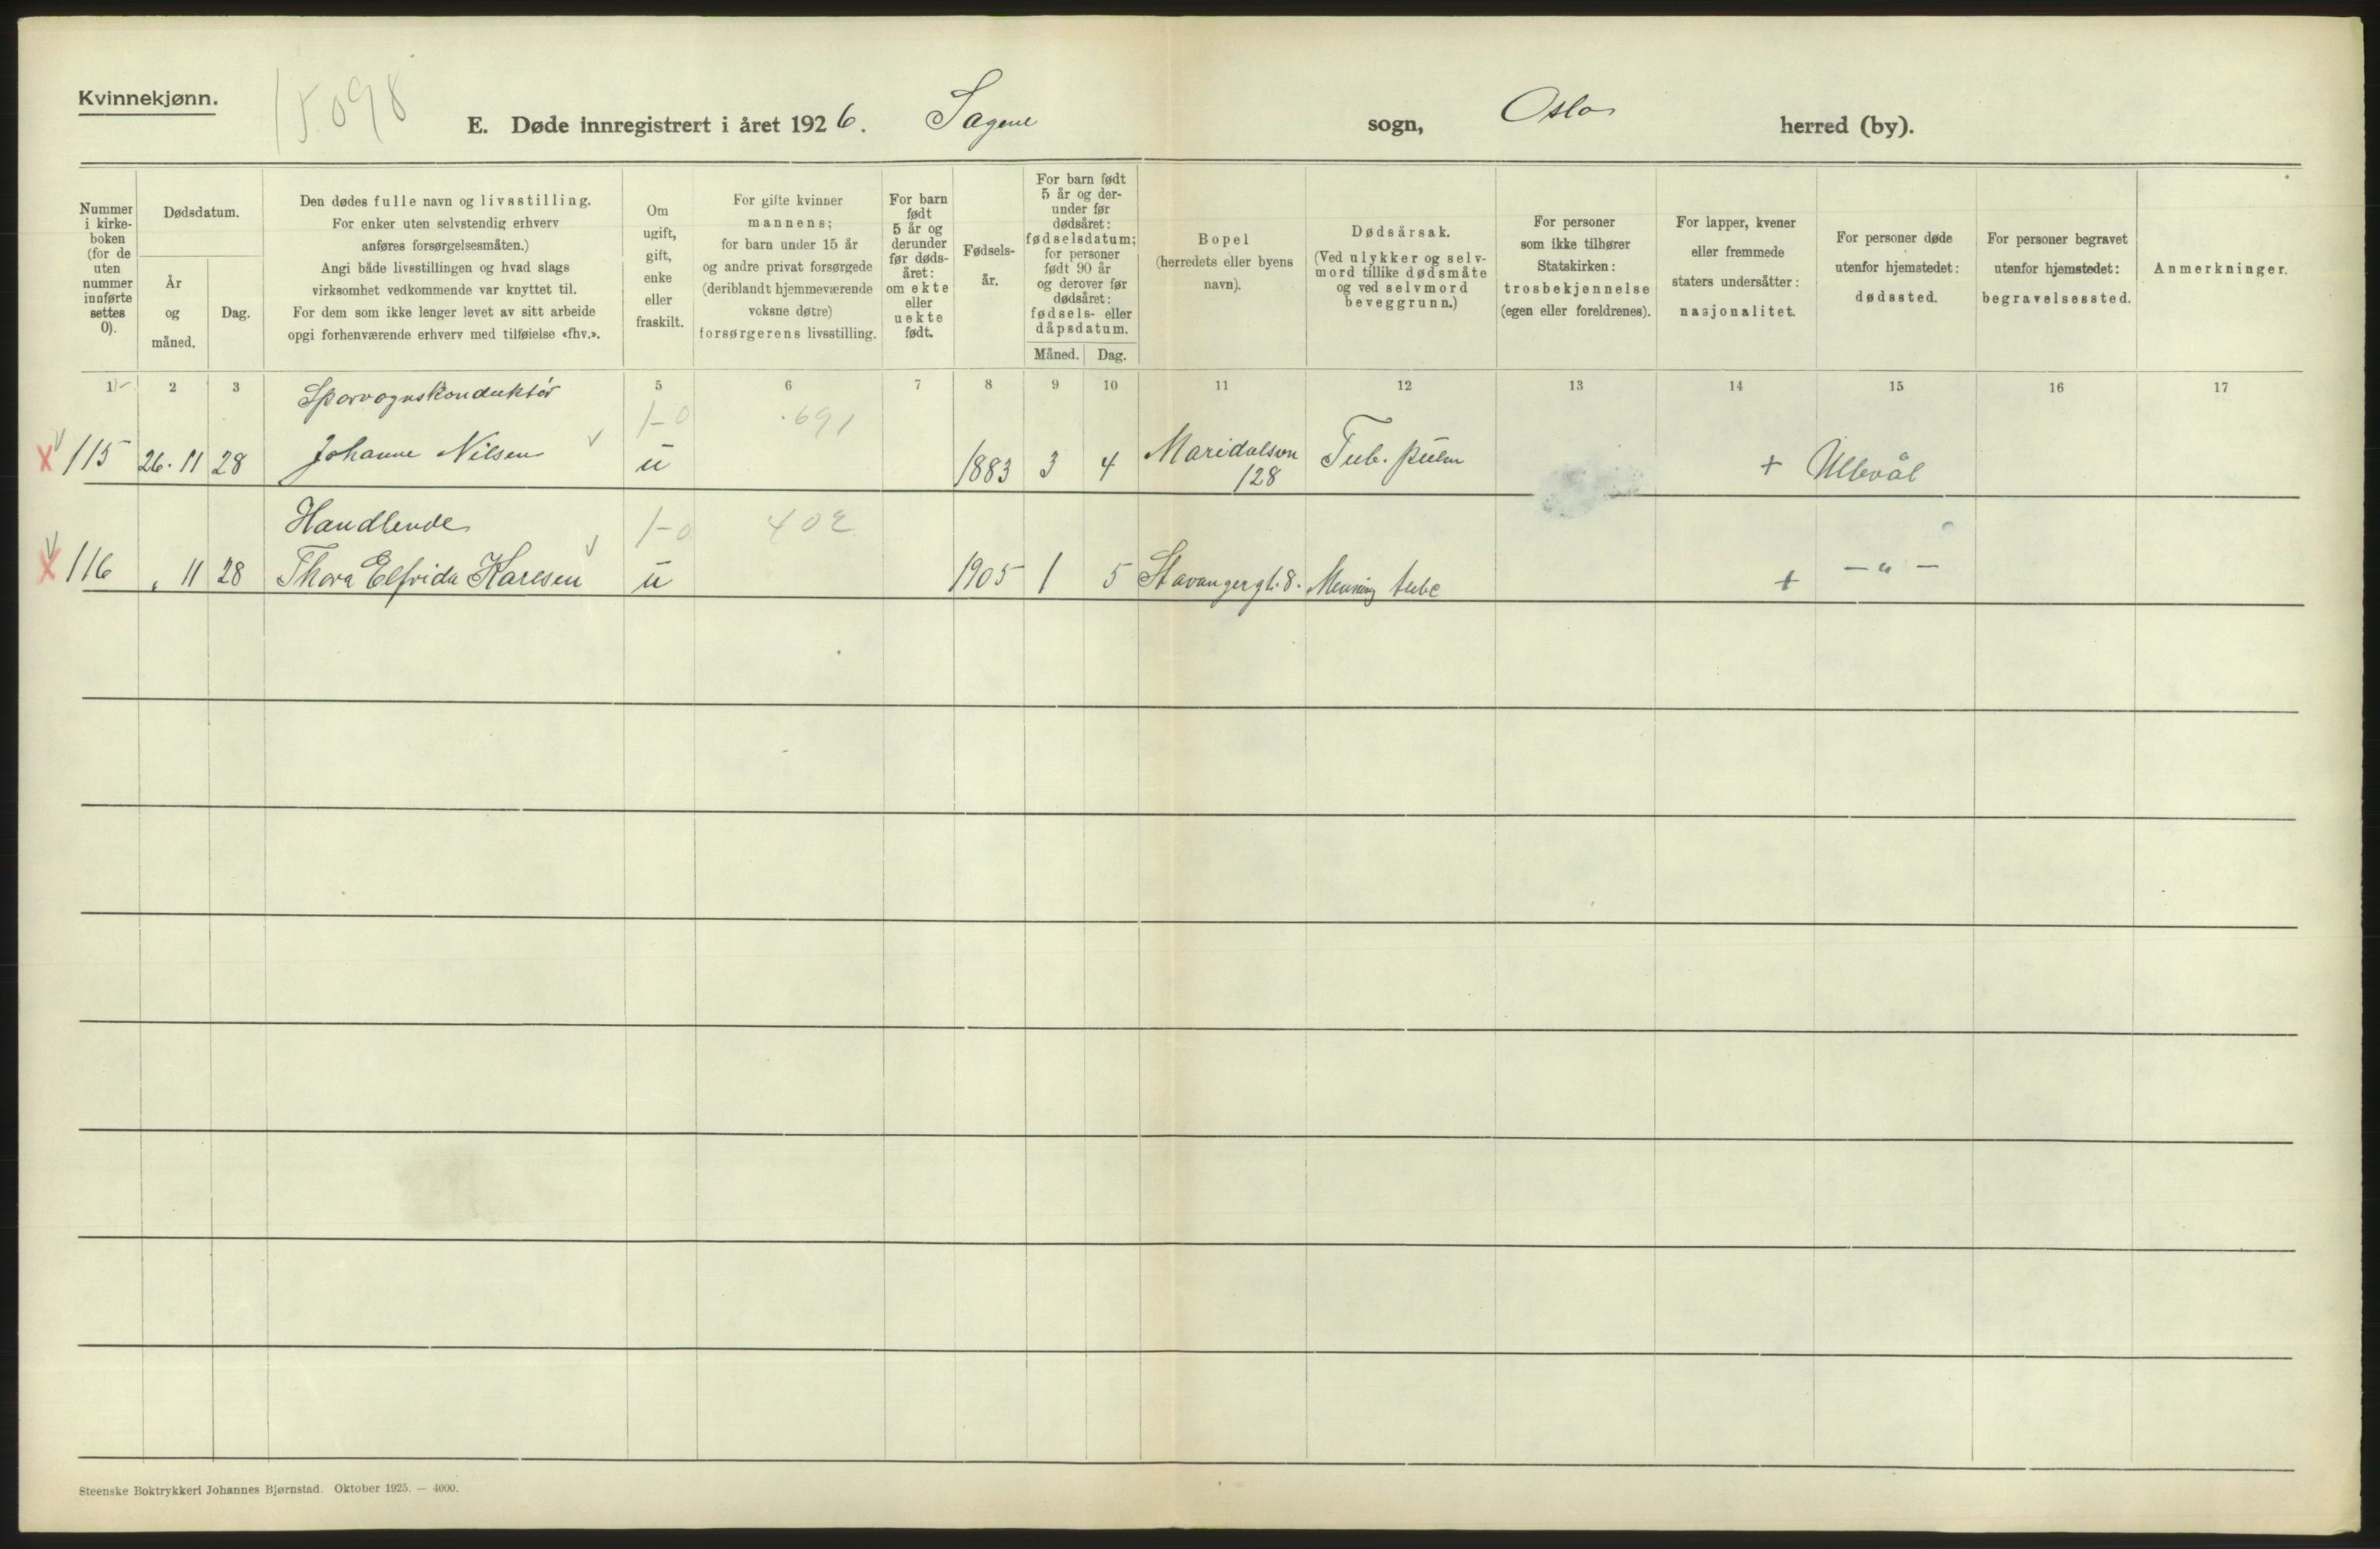 Kvinnekjønn.
15098
E. Døde innregistrert i året 1926. Sagene sogn, Oslo herred (by).
Nummer
i kirke-
boken
(for de
uten
nummer
innførte
settes
0).
Dødsdatum.
År
og
måned.
Dag.
Den dødes fulle navn og livsstilling.
For enker uten selvstendig erhverv
anføres forsørgelsesmåten.)
Angi både livsstillingen og hvad slags
virksomhet vedkommende var knyttet til.
For dem som ikke lenger levet av sitt arbeide
opgi forhenværende erhverv med tilføielse «fhv.».
Om
ugift,
gift,
enke
eller
fraskilt.
For gifte kvinner
mannens;
for barn under 15 år
og andre privat forsørgede
(deriblandt hjemmeværende
voksne døtre)
forsørgerens livsstilling.
For barn
født
5 år og
derunder
før døds-
året:
om ekte
eller
uekte
født.
Fødsels-
år.
For barn født
5 år og der-
under før
dødsåret:
fødselsdatum;
for personer
født 90 år
og derover før
dødsåret:
fødsels- eller
dåpsdatum.
Måned. Dag.
Bopel
(herredets eller byens
navn).
Dødsårsak.
(Ved ulykker og selv-
mord tillike dødsmåte
og ved selvmord
beveggrunn.)
For personer
som ikke tilhører
Statskirken:
trosbekjennelse
(egen eller foreldrenes).
For lapper, kvener
eller fremmede
staters undersåtter:
nasjonalitet.
For personer døde
utenfor hjemstedet:
dødssted.
For personer begravet
utenfor hjemstedet:
begravelsessted.
Anmerkninger.
1 2 3 5 6 7 8 9 10 11 12 13 14 15 16 17
Sporvognskonduktør
1-0 691
X 115 26. 11 28 Johanne Nilsen u 1883 3 4 Maridalsvn Tub. pulm + Ullevål
128
Handlende 1-0 402
X 116 " 11 28 Thora Elfrida Karlsen u 1905 1 5 Stavangergt. 8. Mening tube + - " -
Steenske Boktrykkeri Johannes Bjørnstad. Oktober 1925. — 4000.